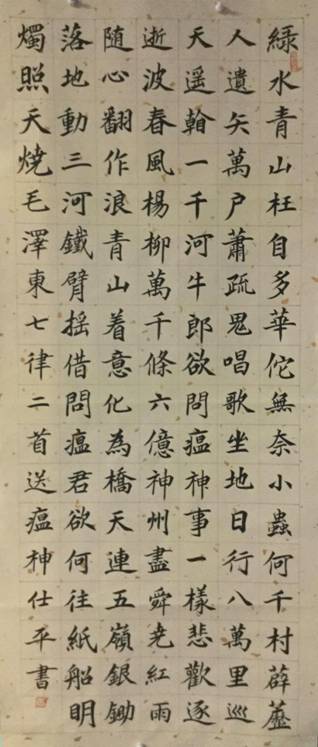 綠水青山枉自多華佗無奈小蟲何千村薜荔
人遺矢萬户蕭疏鬼唱歌坐地日行八萬里巡
天遥翰一千河牛郎欲問瘟神事一樣悲歡逐
逝波春風楊柳萬千條六億神州盡舜堯紅雨
随心翻作浪青山着意化為橋天連五嶺銀鋤
落地動三河鐵臂摇借問瘟君欲何往紙船明
燭照天燒毛澤東七律二首送瘟神仕平書